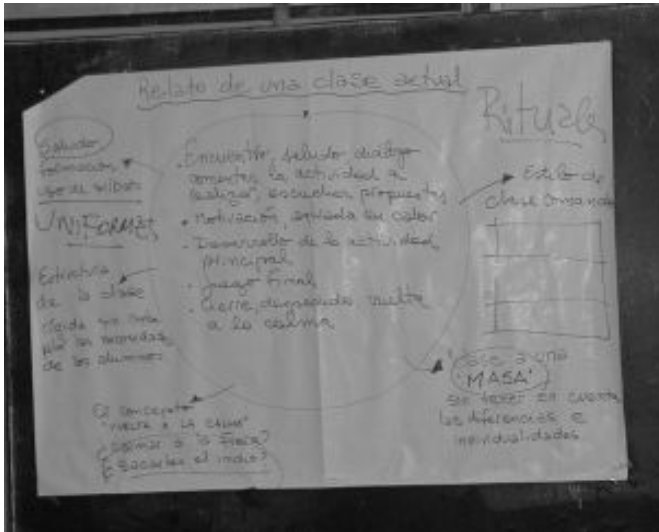 Relato de una clase actual
Rituales
Saludo,
formación,
uso de silbato
UNIFORMES
Estructura
de la clase
por las
de los alumnos
. Encuentro, saludo, diálogo
comentar la actividad a
realizar, escuchar propuestas
• Motivación, entrada en calor
. Desarrollo de la actividad
principal
. Juego Final
. Cierre, despedida vuelta
a la calma
Estilo de
clase comando
clase a una
"MASA"
sin tener en cuenta
las diferencias e
individualidades
El concepto
"VUELTA A LA CALMA"
¿Calmar a la fiera?
¿Sacarles el indio?